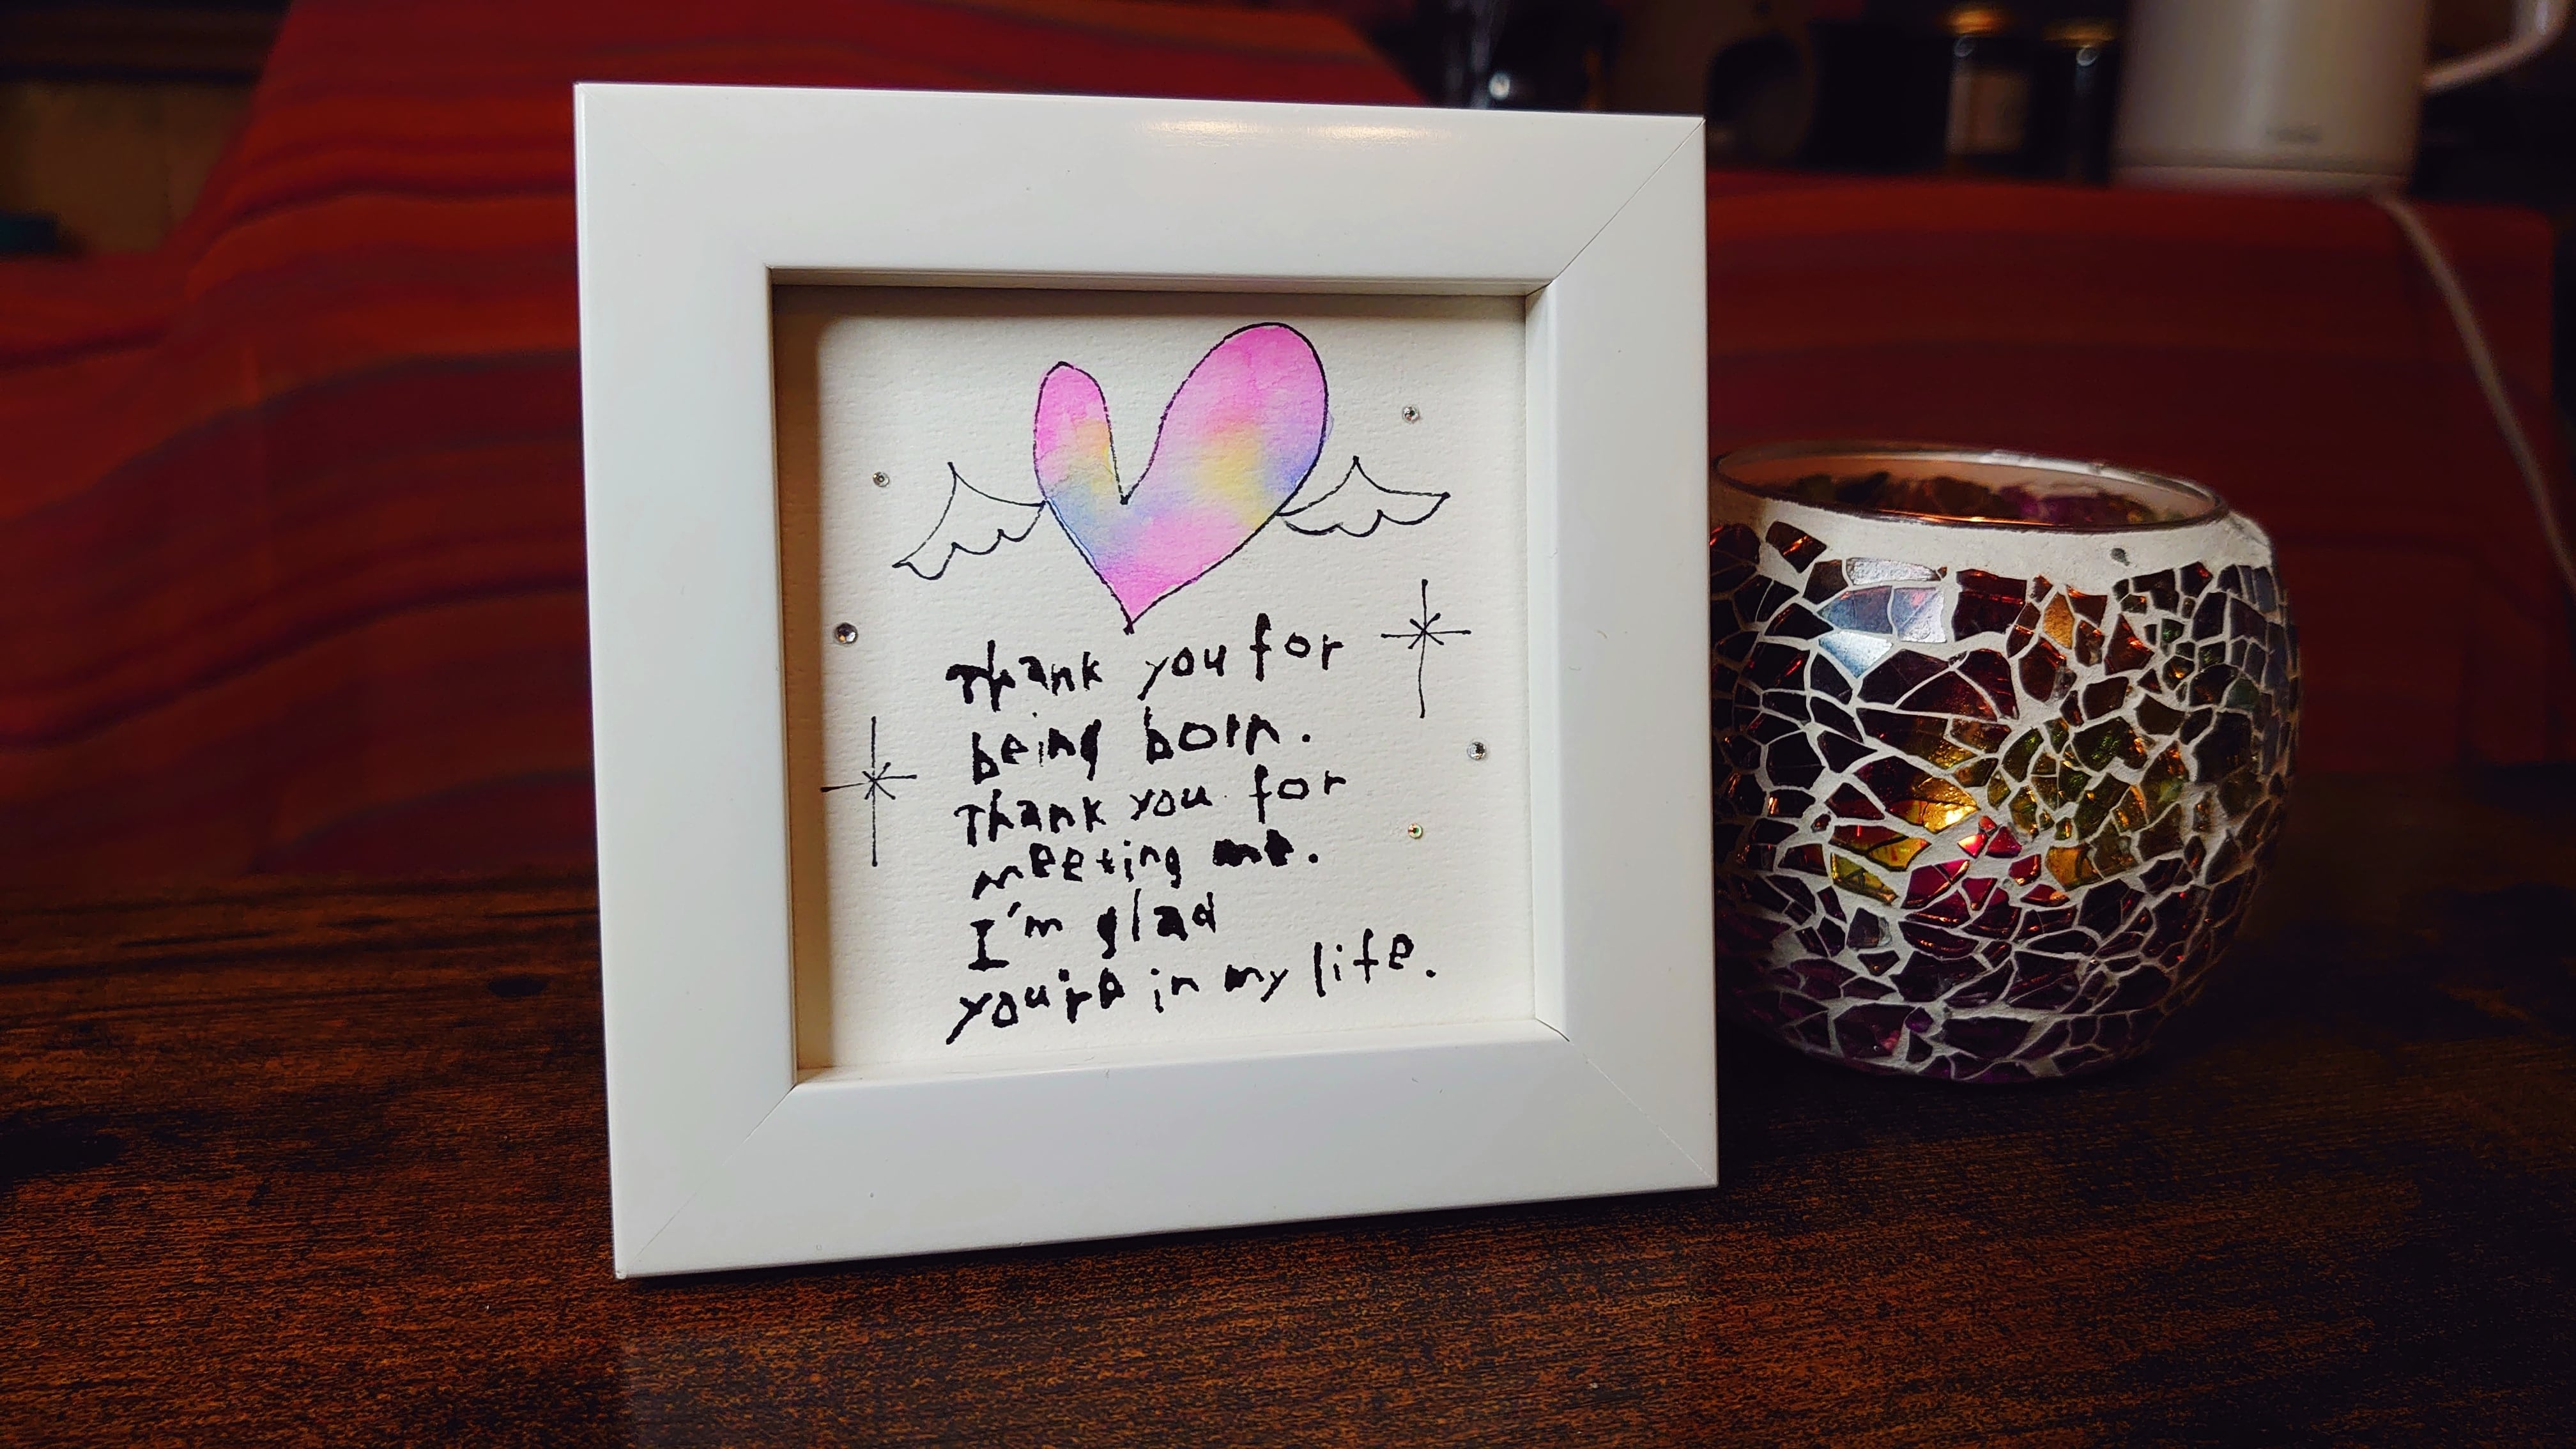 Thank you for
being born.
Thank you for
meeting me.
I'm glad
you're in my life.